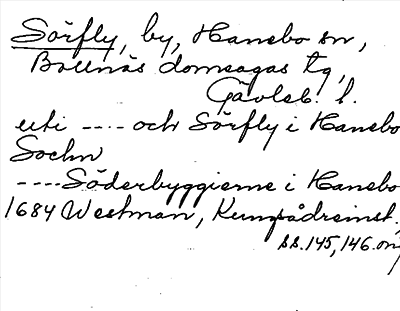 Sörfly, by, Hanebo sn,
Bollnäs domsagas tg,
Gävleb. l.
uti ---- och Sörfly i Hanebo
Sochn
---- Söderbyggierne i Hanebo
1684 Westman, Kungsådreinst.,
ss. 145, 146. orig